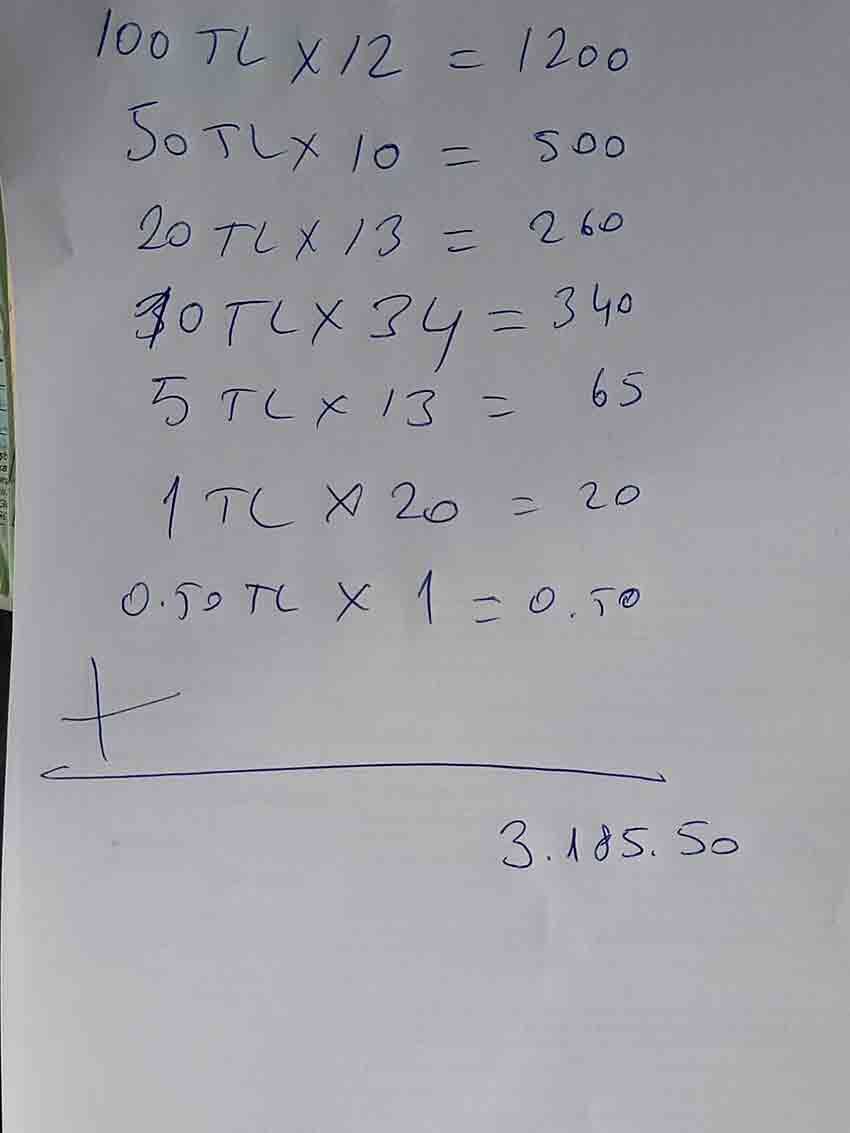 100 TL X 12 = 1200
50 TL X 10 = 500
20 TL X 13 = 260
10 TL X 34 = 340
5 TL X 13 = 65
1 TL X 20 = 20
0.50 TL X 1 = 0.50
+
3.185.50